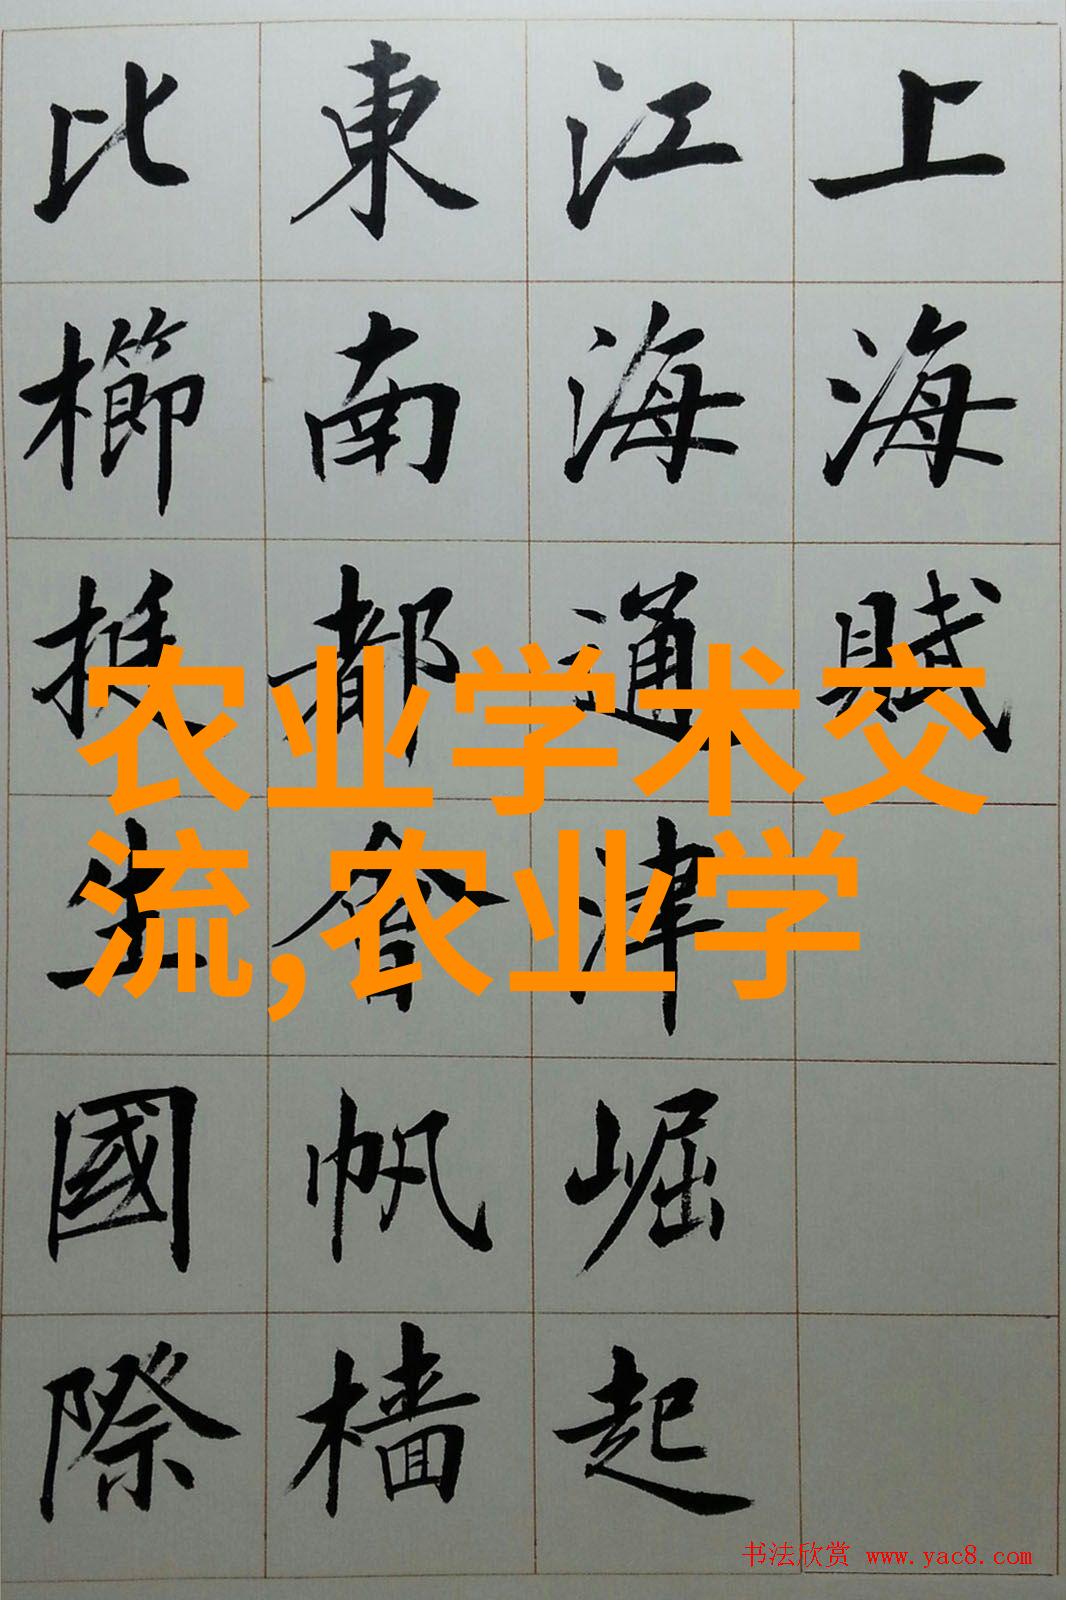 上海賦
江海通津崛起
東南都會帆樯
比櫛挺生國際
农业学术交
流,农业学
书法欣赏 www.yac8.com